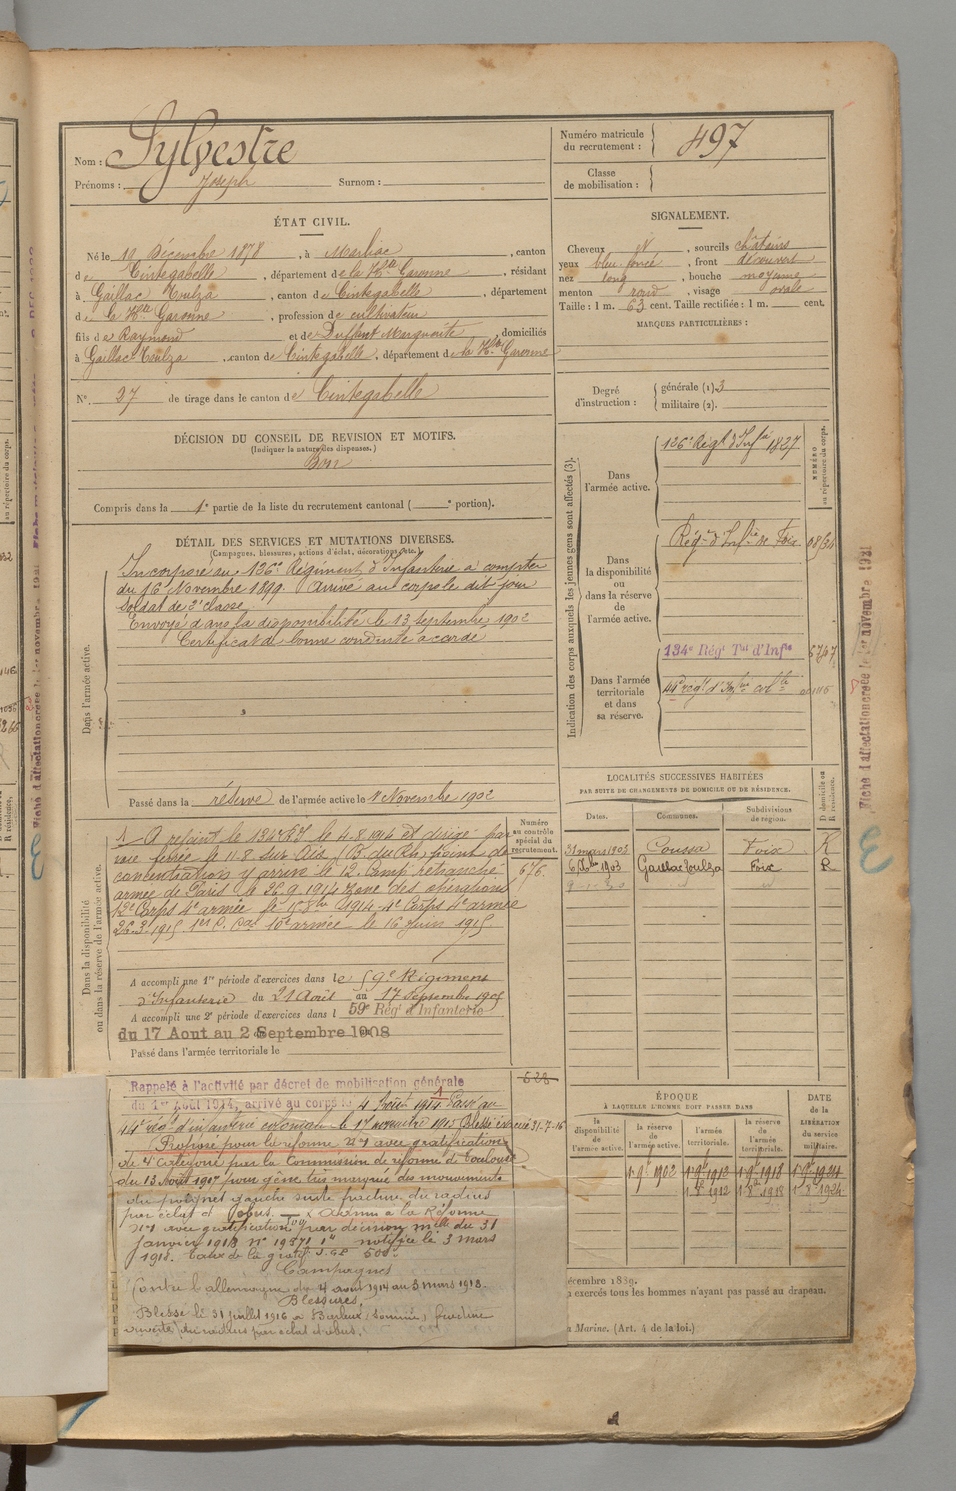 Nom : Sylvestre
Prénoms : Joseph Surnom :
Numéro matricule du recrutement : 497
Classe de mobilisation :
ÉTAT CIVIL.
Né le 10 Décembre 1878, à Marliac, canton
de Cintegabelle, département de la Hte Garonne, résidant
à Gaillac Toulza, canton de Cintegabelle, département
de la Hte Garonne, profession de cultivateur
fils de Raymond et de Marguerite, domiciliés
à Gaillac Toulza, canton de Cintegabelle, département de la Hte Garonne
N°. 27 de tirage dans le canton de Cintegabelle
SIGNALEMENT.
Cheveux N, sourcils châtains
yeux bleu foncé, front découvert
nez long, bouche moyenne
menton rond, visage ovale
Taille : 1 m. 63 cent. Taille rectifiée : 1 m. cent.
MARQUES PARTICULIÈRES :
Degré d'instruction : générale (1) 3
militaire (2).
DÉCISION DU CONSEIL DE REVISION ET MOTIFS.
(Indiquer la nature des dispenses.)
Bon
Compris dans la 1e partie de la liste du recrutement cantonal ( e portion).
DÉTAIL DES SERVICES ET MUTATIONS DIVERSES.
(Campagnes, blessures, actions d'éclat, décorations, etc.)
Dans l'armée active.
Incorporé au 126e Régiment d'Infanterie à compter
du 16 Novembre 1899. Arrivé au corps le dit jour
Soldat de 2e classe.
Envoyé dans la disponibilité le 13 septembre 1902
Certificat de bonne conduite accordé
Passé dans la réserve de l'armée active le 1 Novembre 1902
Indication des corps auxquels les jeunes gens sont affectés (3).
NUMÉRO au répertoire du corps.
Dans l'armée active.
126e Régt d'Infie 1827
Dans la disponibilité ou dans la réserve de l'armée active.
Régt d'Infie de Foix
Dans l'armée territoriale et dans sa réserve.
134e Régt Tal d'Infie
44e régt d'Infie colle
Fiche d'affectation créée le 1er novembre 1931
LOCALITÉS SUCCESSIVES HABITÉES
PAR SUITE DE CHANGEMENTS DE DOMICILE OU DE RÉSIDENCE.
Dates. Communes. Subdivisions de région. D domicile ou R résidence.
31 mars 1903 Coussa Foix R
1903 Gaillac Toulza Foix R
Dans la disponibilité ou dans la réserve de l'armée active.
Numéro au contrôle spécial du recrutement.
676
1 A rejoint le 134e RT le 4.8.1914 et dirigé par
voie ferrée le 11.8 sur Aix (B. du Rh.) point de
concentration y arrive le 12. Camp retranché
armée de Paris le 26.9.1914 zone des opérations
12e Corps 4e armée le 1914 4e Corps 4e armée
26.3.1915. 10e armée le 16 juin 1915
A accompli une 1re période d'exercices dans le 59e Régiment
d'Infanterie du 21 Août au 17 Septembre 1905
A accompli une 2e période d'exercices dans l 59e Régt d'Infanterie
du 17 Aout au 2 Septembre 1908
Passé dans l'armée territoriale le
Rappelé à l'activité par décret de mobilisation générale
du 1er Août 1914, arrivé au corps le 4 Août 1914 Passé au
44e régt d'infanterie coloniale le 17 novembre 1915 Blessé 31-7-16
Proposé pour la réforme n°1 avec gratification
de 4e catégorie par la Commission de réforme de Toulouse
du 13 Août 1917 pour gêne très marquée des mouvements
du poignet gauche suite fracture du radius
par éclat d'obus. Admis à la Réforme
n°1 avec gratification par décision melle du 31
Janvier 1918 notifiée le 3 mars
1918.
Campagnes
Contre l'allemagne du 4 août 1914 au 3 mars 1918.
Blessures.
Blessé le 31 juillet 1916 à (Somme) fracture
ouverte du radius par éclat d'obus.
ÉPOQUE
À LAQUELLE L'HOMME DOIT PASSER DANS
la disponibilité de l'armée active. la réserve de l'armée active. l'armée territoriale. la réserve de l'armée territoriale.
DATE de la LIBÉRATION du service militaire.
1 9e 1902 1 9e 1912 1 9e 1918 1 9e 1924
1 8e 1912 1 8e 1918 1 8e 1924
écembre 1889.
exercés tous les hommes n'ayant pas passé au drapeau.
Marine. (Art. 4 de la loi.)